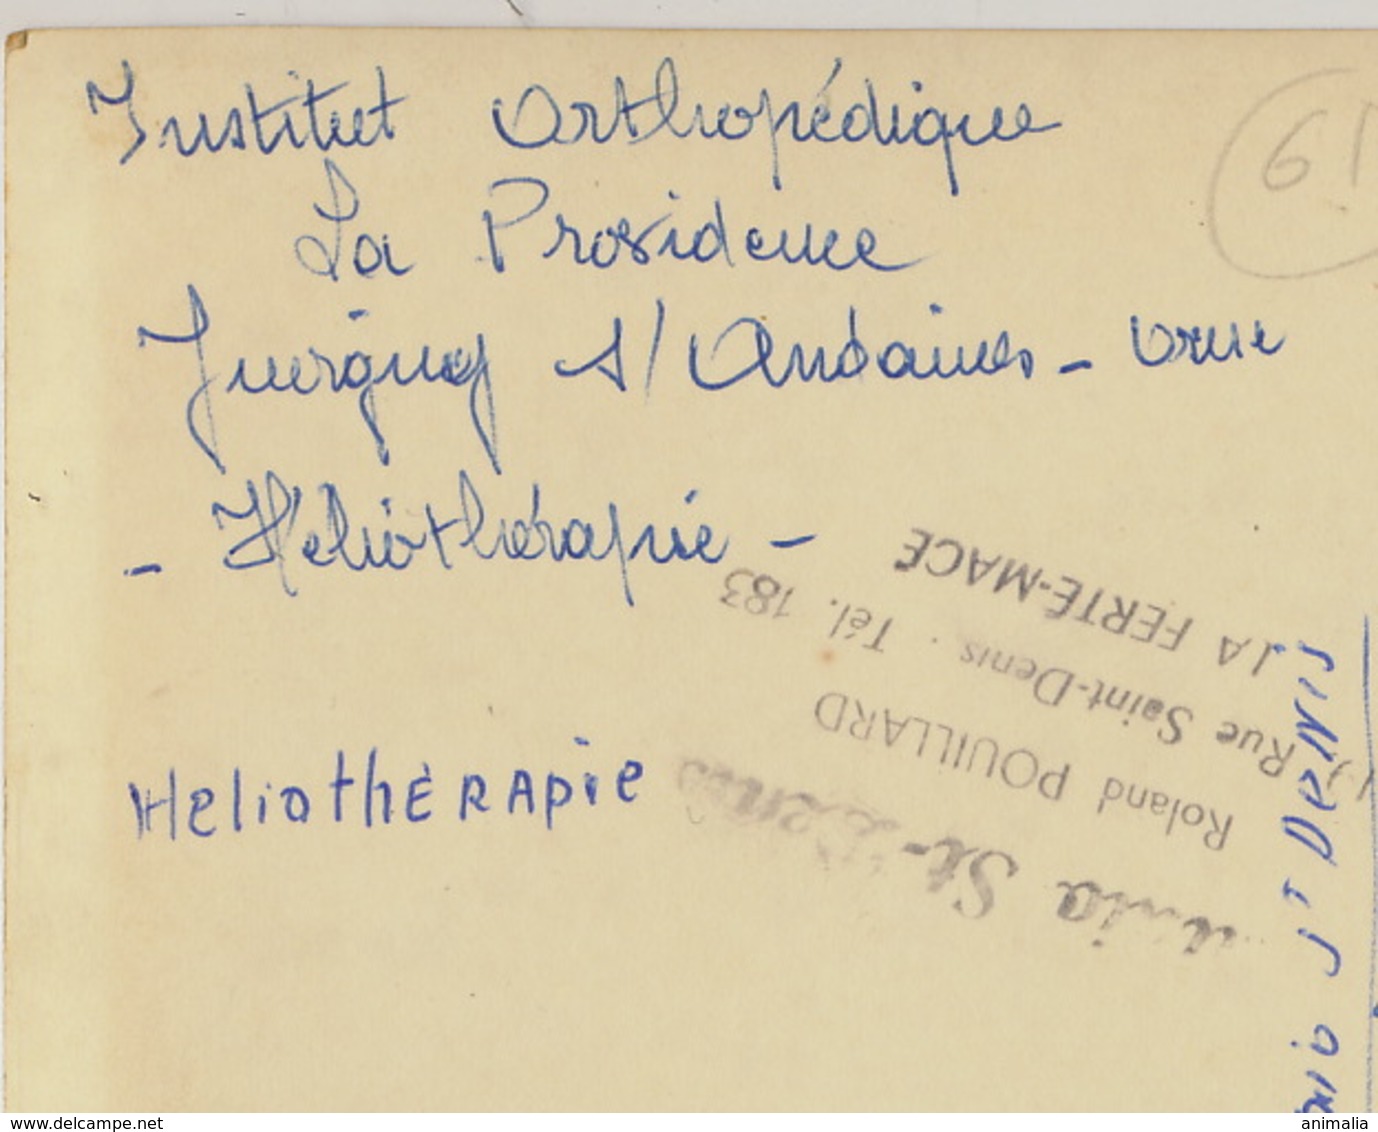 Institut Orthopédique
61
La Providence
Juvigny s/ Andaines - Orne
- Héliothérapie -
HeliothÈRApie
St-Denis
Roland POUILLARD
Rue Saint-Denis . Tél. 183
LA FERTÉ-MACÉ
ST DeNIS
www.delcampe.net
animalia